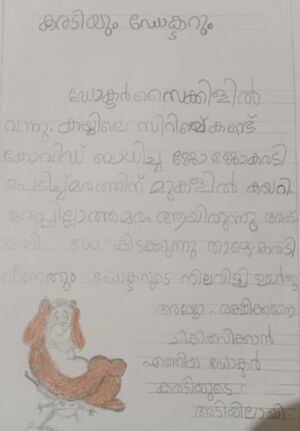 കരടിയും ഡോക്ടറും
ഡോക്ടർ സൈക്കിളിൽ
വന്നു. കയ്യിലെ സിറിഞ്ച് കണ്ട്
കോവിഡ് ബാധിച്ച ജോ ജോകരടി
പേടിച്ച് മരത്തിന് മുകളിൽ കയറി.
ഉറപ്പില്ലാത്തമരം ആയിരുന്നു അത്
കരടി ധേ കിടക്കുന്നു താഴെ. കരടി
വീണതും ഡോക്ടറുടെ നിലവിളി ഉയർന്നു
അയ്യോ. രക്ഷിക്കണേ
ചികിത്സിക്കാൻ
എത്തിയ ഡോക്ടർ
കരടിയുടെ
അടിയിലായി